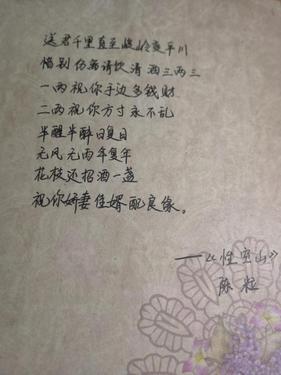 送君千里直至峻岭变平川
惜别伤离请饮清酒三两三
一两祝你手边多钱财
二两祝你方寸永不乱
半醒半醉日复日
无风无雨年复年
花枝还招酒一盏
祝你娇妻佳婿配良缘。
——《性空山》
陈粒